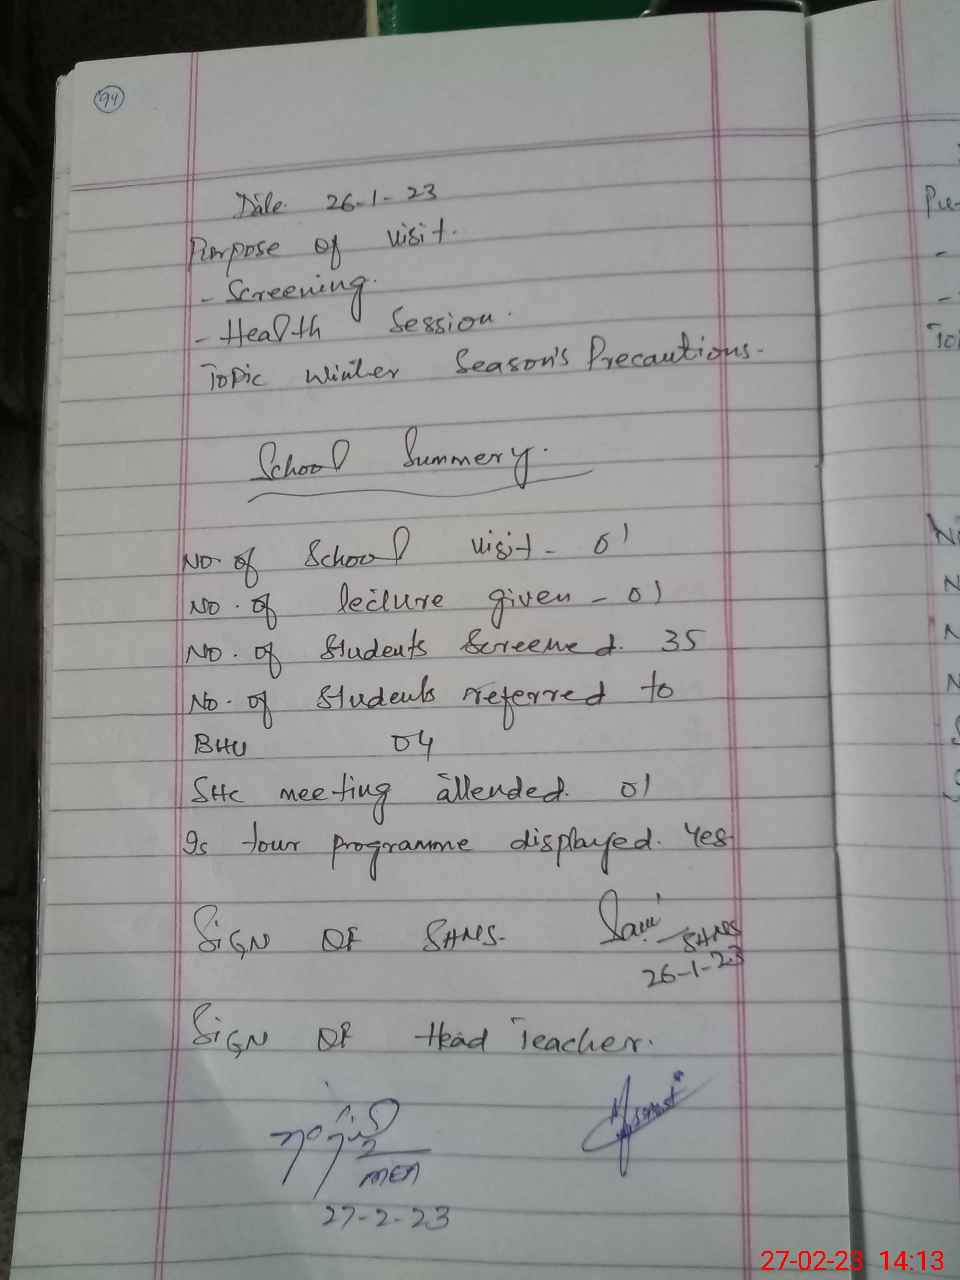 94
Date. 26-1-23
Purpose of visit.
- Screening.
- Health Session.
Topic Winter Season's Precautions.
School Summery.
No. of School visit - 01
No. of lecture given - 01
No. of Students Screened. 35
No. of Students referred to
BHU 04
SHC meeting attended. 01
Is tour programme displayed. Yes
Sign OF SHNS.
SHNS
26-1-23
Sign OF Head Teacher.
MEA
27-2-23
27-02-23 14:13